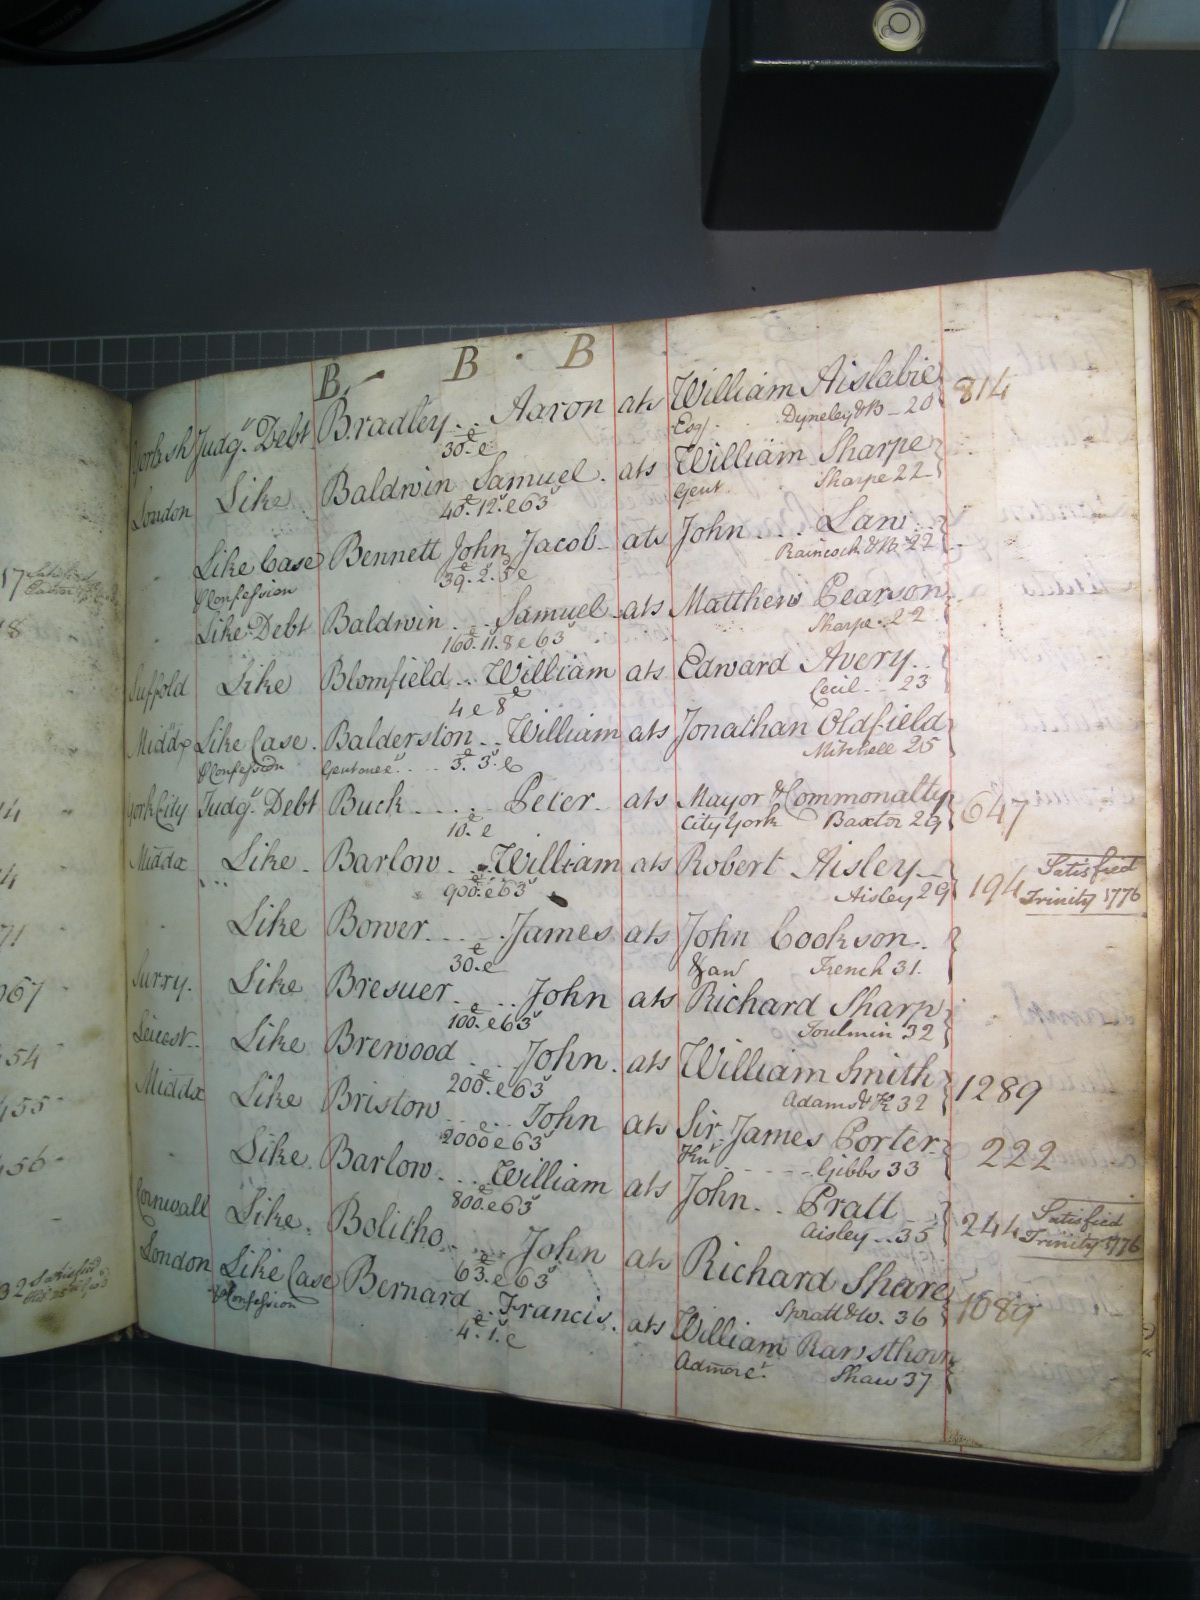 B. B. B
Yorksh Judgt. Debt Bradley... Aaron ats William Aislabie 814
30. e Esqr. Dyneley & B - 20
London Like Baldwin Samuel. ats William Sharpe
40. 12. e 63 Gent. Sharpe 22
Like Case Bennett John Jacob - ats John ... Law
Confession 39. 2. 5 e Raincock & B. 22
Like Debt Baldwin ... Samuel ats Matthew Pearson
160. 11. 8 e 63 Sharpe. 22
Suffold Like Blomfield .. William ats Edward Avery..
4 e 8 Cecil .. 23
Middx Like Case. Balderston .. William ats Jonathan Oldfield
Confession Gent one &c. 3. 3. e Mitchell 25
York City Judgt. Debt Buck .... Peter. ats Mayor & Commonalty 647
10. e City York Baxter 29
Middx Like. Barlow ... William ats Robert Aisley 194 Satisfied
900. e 63 Aisley 29 Trinity 1776
Like Bower.... James ats John Cookson.
30. e & an French 31.
Surry. Like Bresuer... John ats Richard Sharp
100. e 63 Toulmin 32
Leicest. Like Brewood .. John. ats William Smith 1289
200. e 63 Adams & K 32
Middx Like Bristow ... John ats Sir James Porter 222
2000 e 63 Knt Gibbs 33
Like. Barlow... William ats John.. Pratt 244 Satisfied
800. e 63 Aisley .. 35 Trinity 1776
Cornwall Like. Bolitho ... John ats Richard Share 1689
63. e 63 Spratt & W. 36
London Like Case Bernard .. Francis. ats William Rawsthorn
Confession 4. 1. e Admor &c. Shaw 37